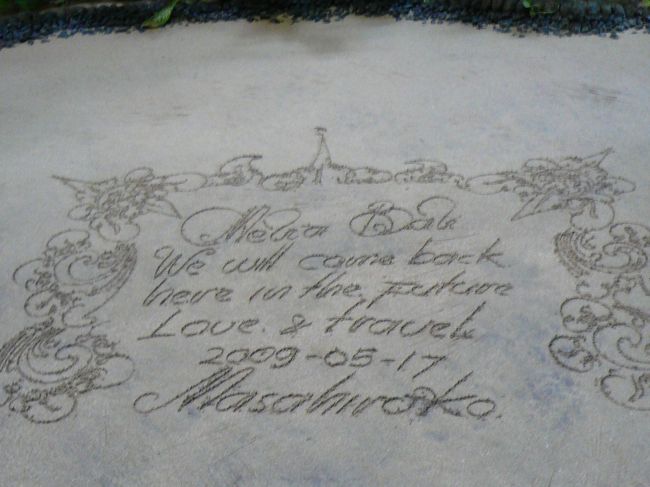 Melia Bali
We will come back
here in the Future
Love & travel
2009-05-17
Masahiro & Ko.